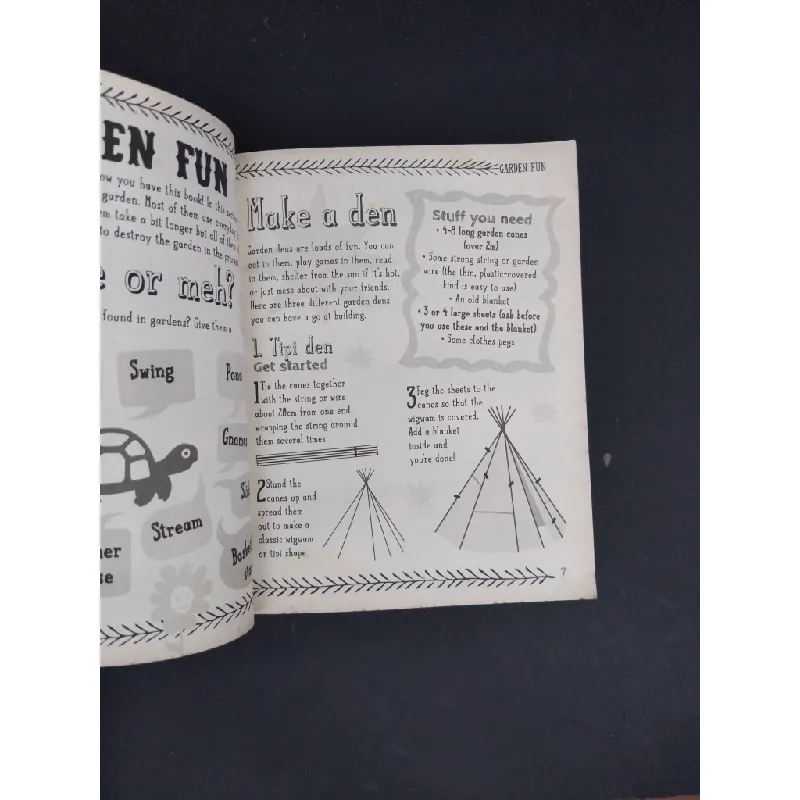 EN FUN
you have this book! In this
garden. Most of them use
take a bit longer but all of
to destroy the garden in the
or meh?
found in gardens? Give them a
Swing
Stream
GARDEN FUN
Make a den
Garden dens are loads of fun. You can
eat in them, play games in them, read
in them, shelter from the sun if it's hot,
or just mess about with your friends.
Here are three different garden dens
you can have a go at building.
Stuff you need
• 4-8 long garden canes
(over 2m)
• Some strong string or garden
wire (the thin, plastic-covered
kind is easy to use)
• An old blanket
• 3 or 4 large sheets (ask before
you use these and the blanket)
• Some clothes pegs
1. Tipi den
Get started
1 Tie the canes together
with the string or wire
about 20cm from one end
wrapping the string around
them several times.
2 Stand the
canes up and
spread them
out to make a
classic wigwam
or tipi shape.
3 Peg the sheets to the
canes so that the
wigwam is covered.
Add a blanket
inside and
you're done!
7